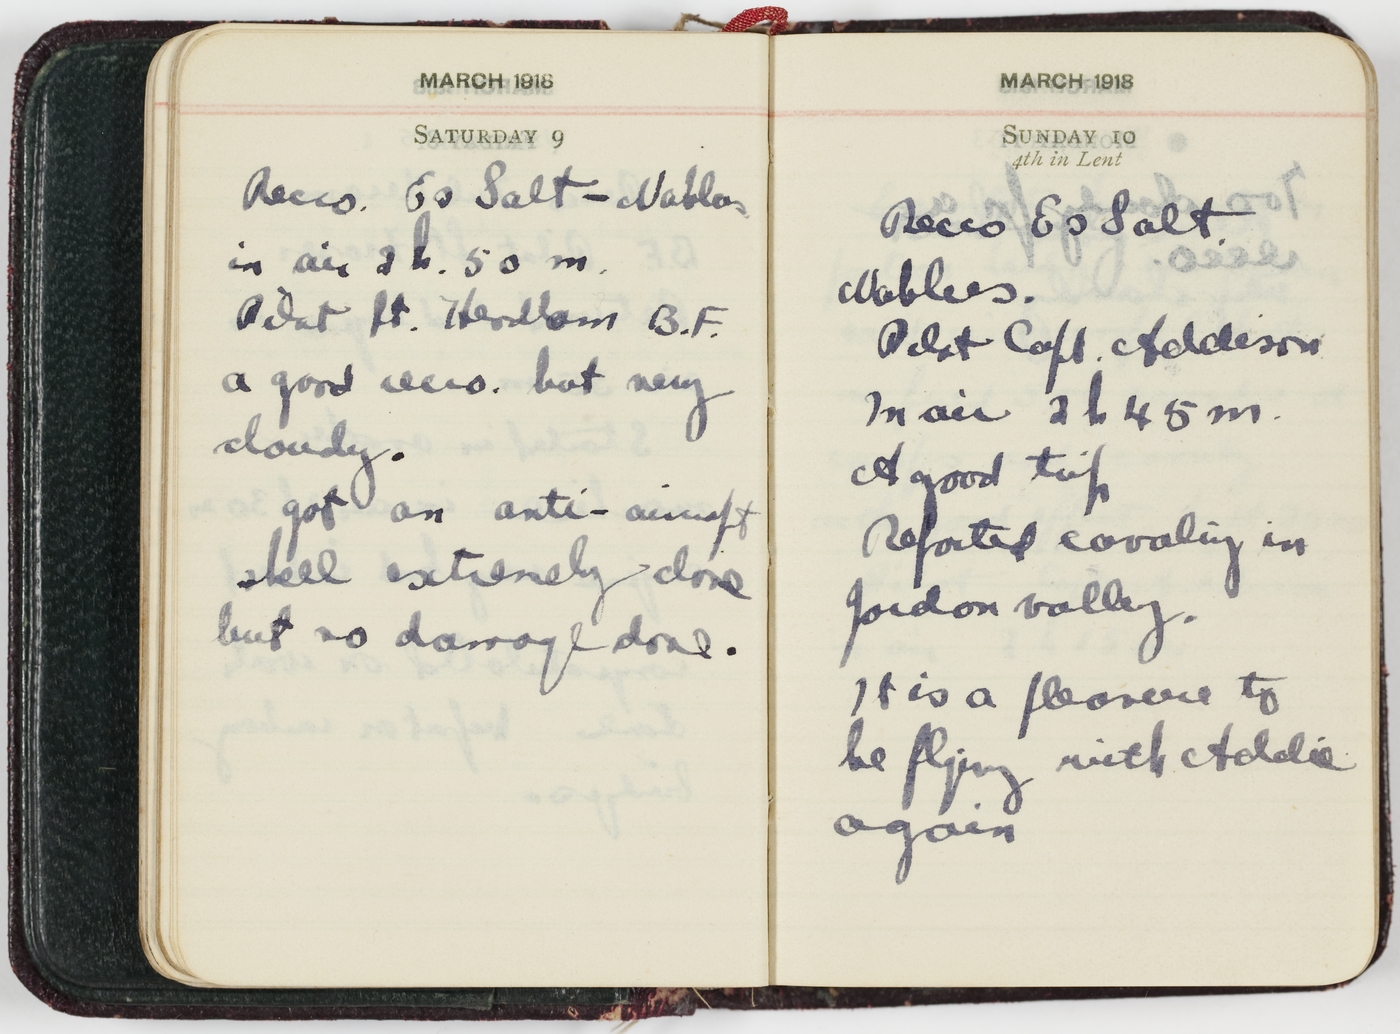 MARCH 1918
SATURDAY 9
Recco. Es Salt - Nablas
in air 2 h. 50 m.
Pilot Lt. B.F.
a good recco. but very
cloudy.
got an anti-aircraft
shell extremely close
but no damage done.
MARCH 1918
SUNDAY 10
4th in Lent
Recco Es Salt
Nablus.
Pilot Capt. Addison
In air 2 h 45 m.
A good trip
Reported cavalry in
Jordon valley.
It is a pleasure to
be flying with Addie
again